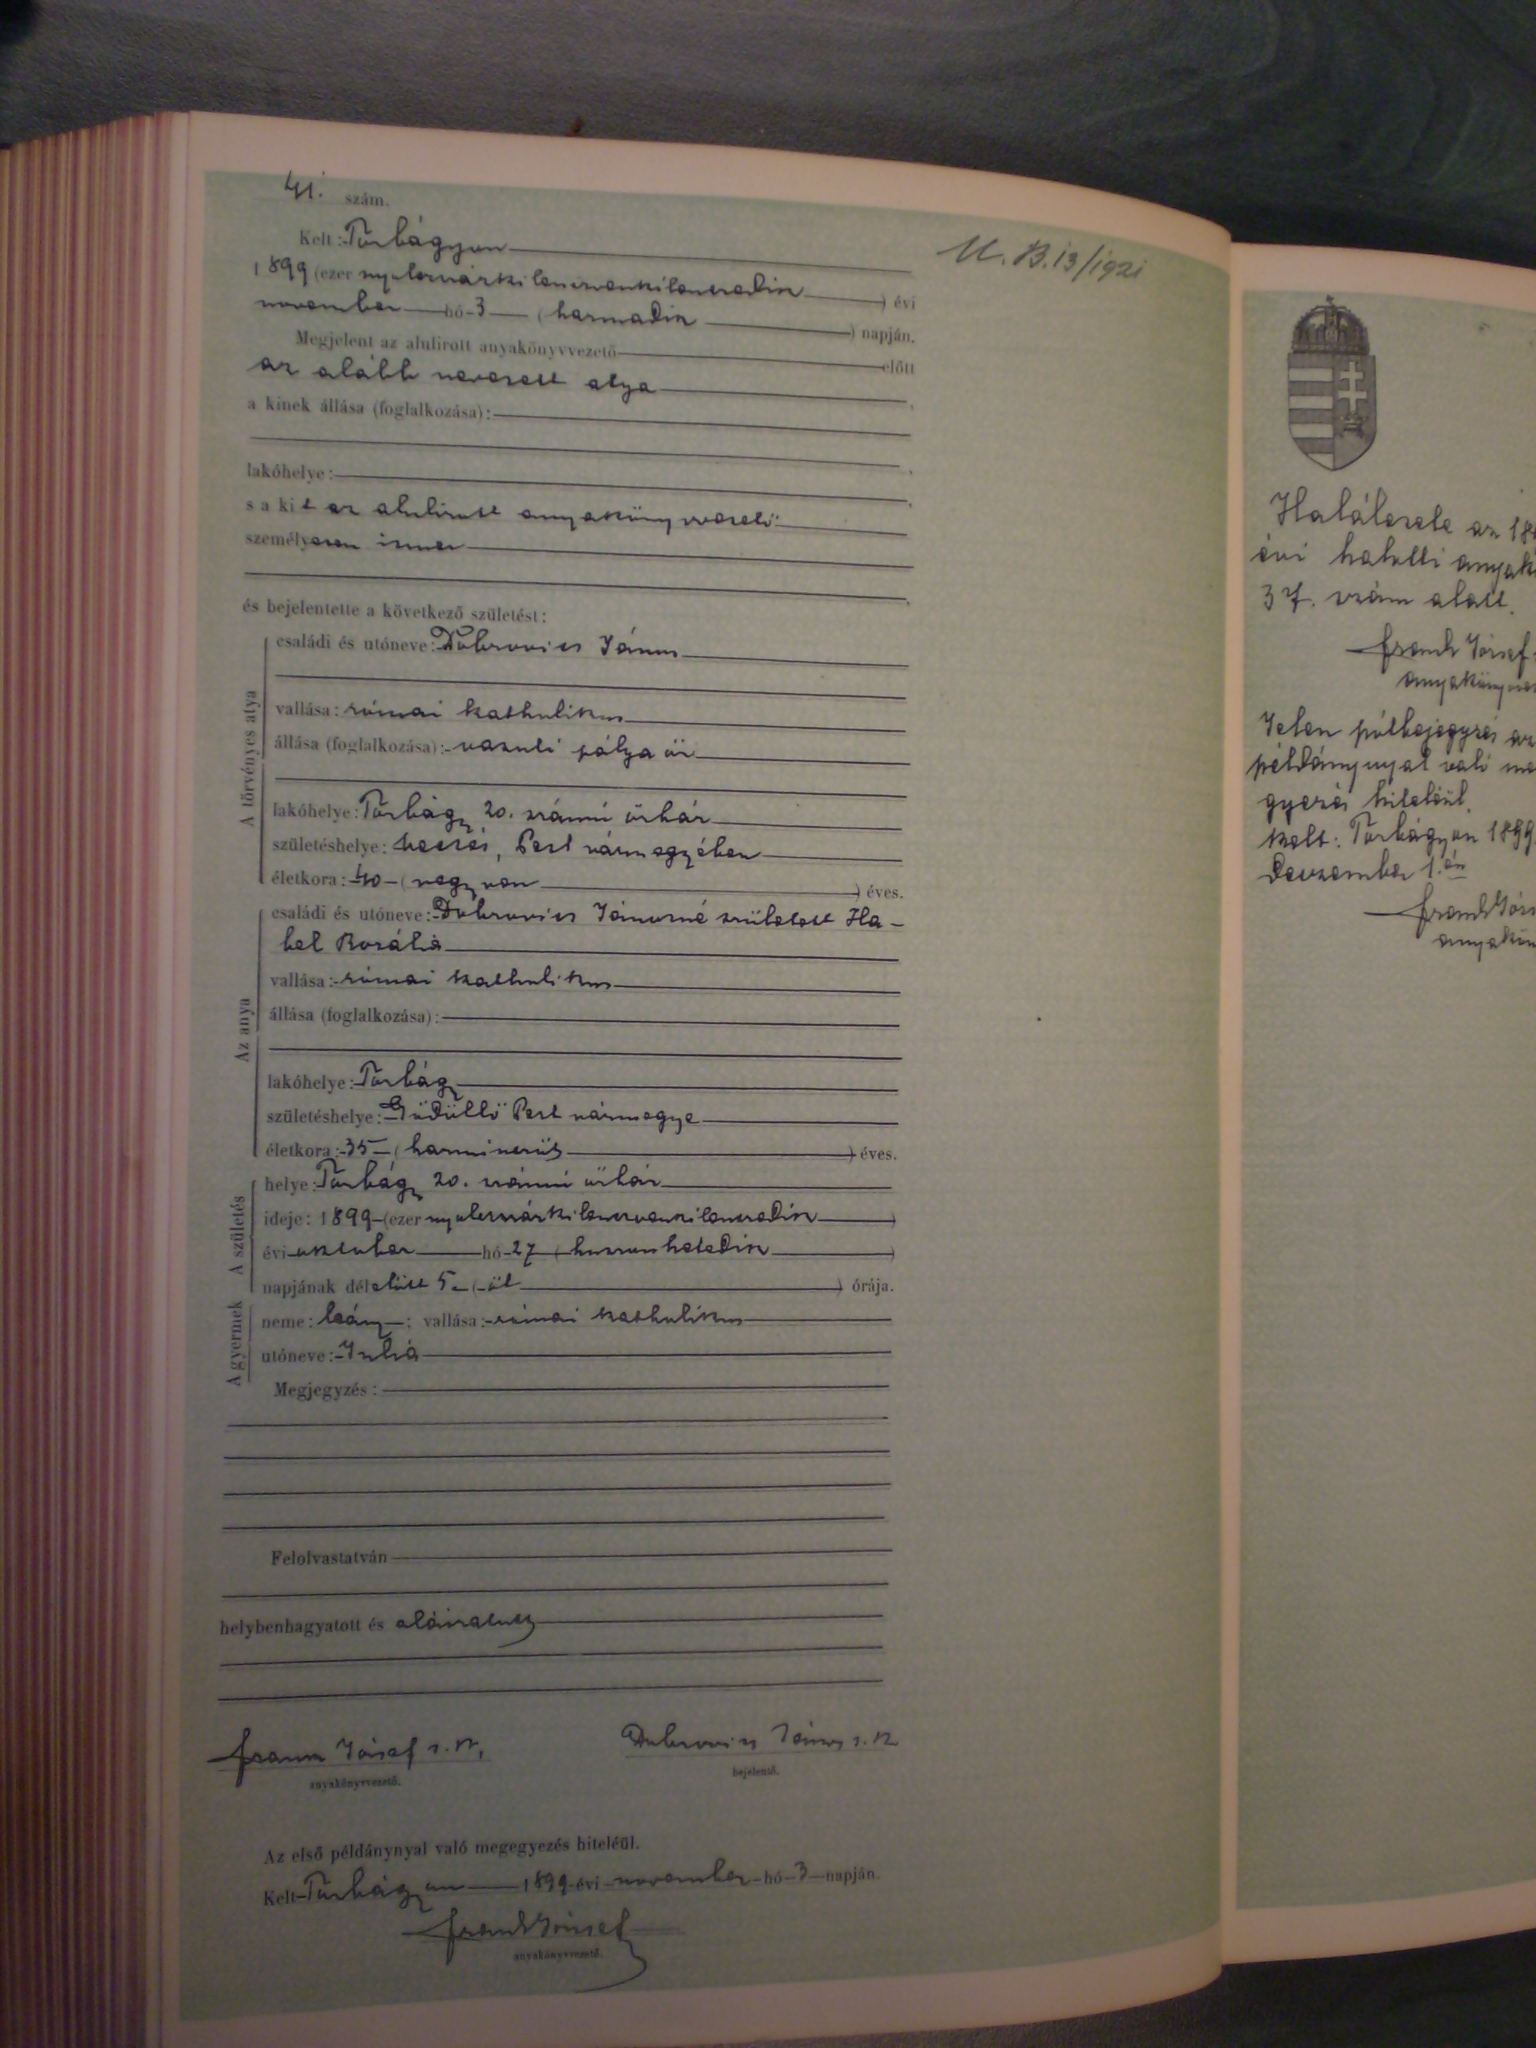 41. szám.
Kelt: Törbágyon
1899 (ezer nyolczszázkilenczvenkilenczedik) évi
november hó 3 (harmadik) napján.
Megjelent az alulirott anyakönyvvezető előtt
az alább nevezett atya
a kinek állása (foglalkozása):
lakóhelye:
s a kit az alulirott anyakönyvvezető
személyesen ismer
és bejelentette a következő születést:
A törvényes atya
családi és utóneve: Dobrovics János
vallása: római katholikus
állása (foglalkozása): vasuti pálya őr
lakóhelye: Törbágy 20. számú őrház
születéshelye: Pest vármegyében
életkora: 40 (negyven) éves.
Az anya
családi és utóneve: Dobrovics Jánosné született Ha-
bel Rozália
vallása: római katholikus
állása (foglalkozása):
lakóhelye: Törbágy
születéshelye: Gödöllő Pest vármegye
életkora: 35 (harminczöt) éves.
A születés
helye: Törbágy 20. számú őrház
ideje: 1899 (ezer nyolczszázkilenczvenkilenczedik)
évi október hó 27 (huszonhetedik)
napjának délelőtt 5 (öt) órája.
A gyermek
neme: leány; vallása: római katholikus
utóneve: Julia
Megjegyzés:
Felolvastatván
helybenhagyatott és aláiratott
Frank József s. k. Dobrovics János s. k.
anyakönyvvezető. bejelentő.
Az első példánynyal való megegyezés hiteléül.
Kelt Törbágyon 1899 évi november hó 3 napján.
Frank József
anyakönyvvezető.
M. B. 13/1921
Halálesete az 18
évi halotti anyak
37. szám alatt.
Frank József
anyakönyvve
Jelen pótbejegyzés az
példánynyal való me
gyezés hiteléül.
Kelt: Törbágyon 1899
Deczember 1.én
Frank Józs
anyakön